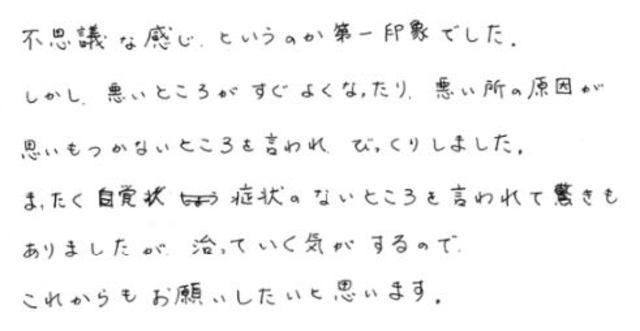 不思議な感じ、というのが第一印象でした。
しかし、悪いところがすぐよくなったり、悪い所の原因が
思いもつかないところを言われ、びっくりしました。
まったく自覚状 症状のないところを言われて驚きも
ありましたが、治っていく気がするので、
これからもお願いしたいと思います。